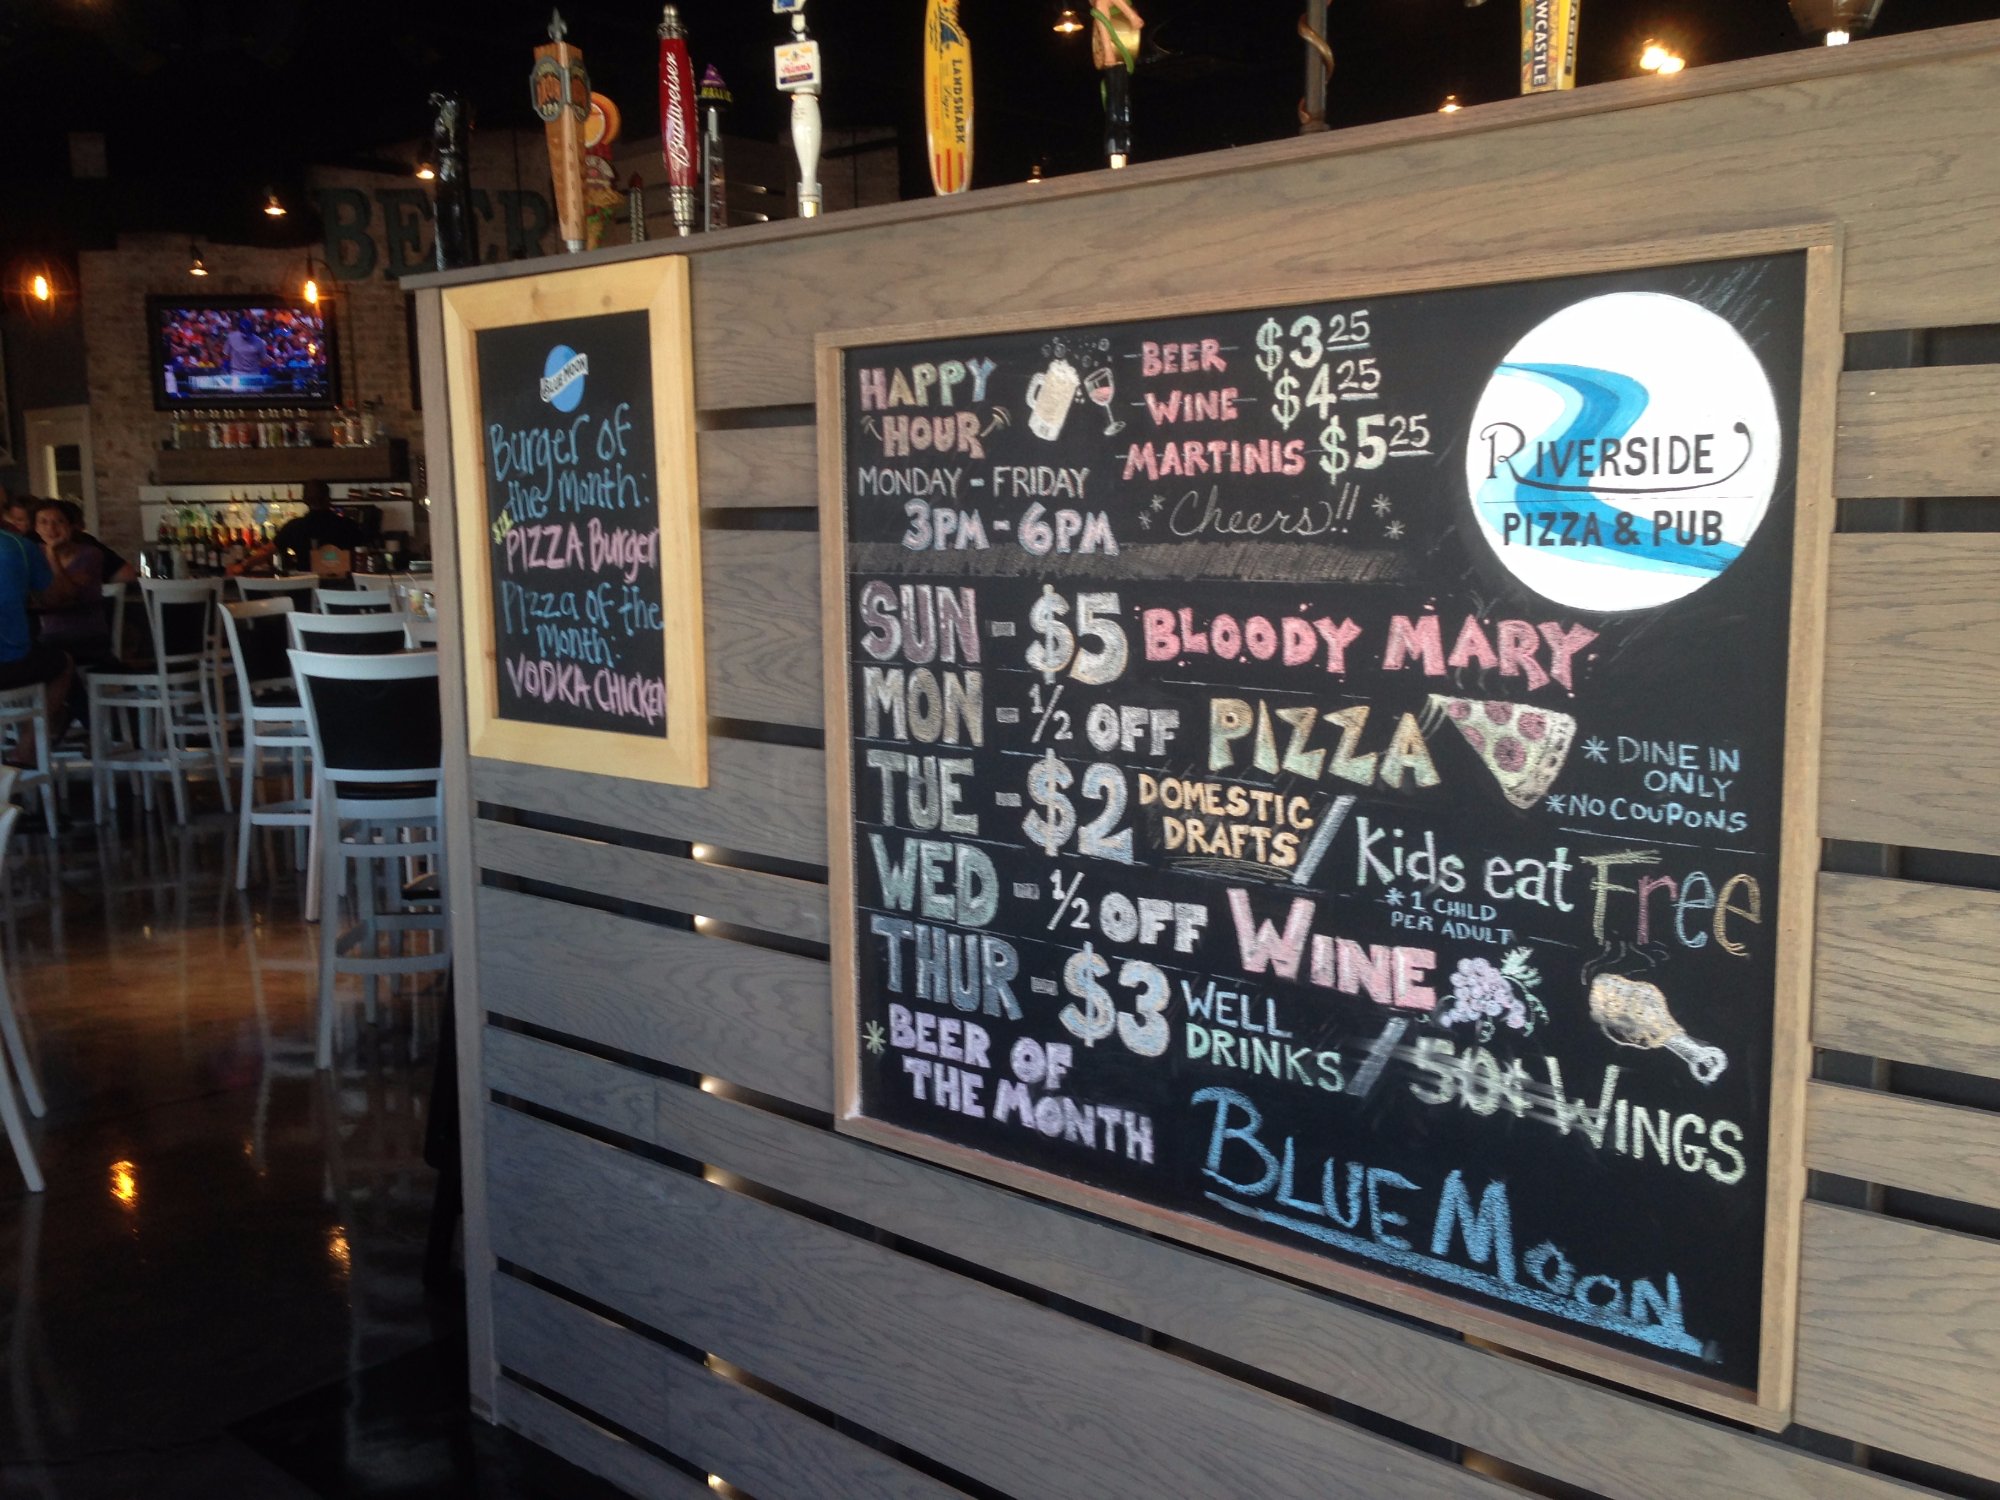 BEER
Budweiser
Hamm's
LANDSHARK
Lager
NEWCASTLE
BLUE MOON
Burger of
the Month:
PIZZA Burger
Pizza of the
Month:
VODKA CHICKEN
HAPPY
HOUR
MONDAY - FRIDAY
3PM - 6PM
BEER $3.25
WINE $4.25
MARTINIS $5.25
* Cheers!! *
RIVERSIDE
PIZZA & PUB
SUN - $5 BLOODY MARY
MON - 1/2 OFF PIZZA
* DINE IN
ONLY
* NO COUPONS
TUE - $2 DOMESTIC
DRAFTS / Kids eat Free
* 1 CHILD
PER ADULT
WED - 1/2 OFF WINE
THUR - $3 WELL
DRINKS / 50¢ WINGS
* BEER OF
THE MONTH
BLUE MOON